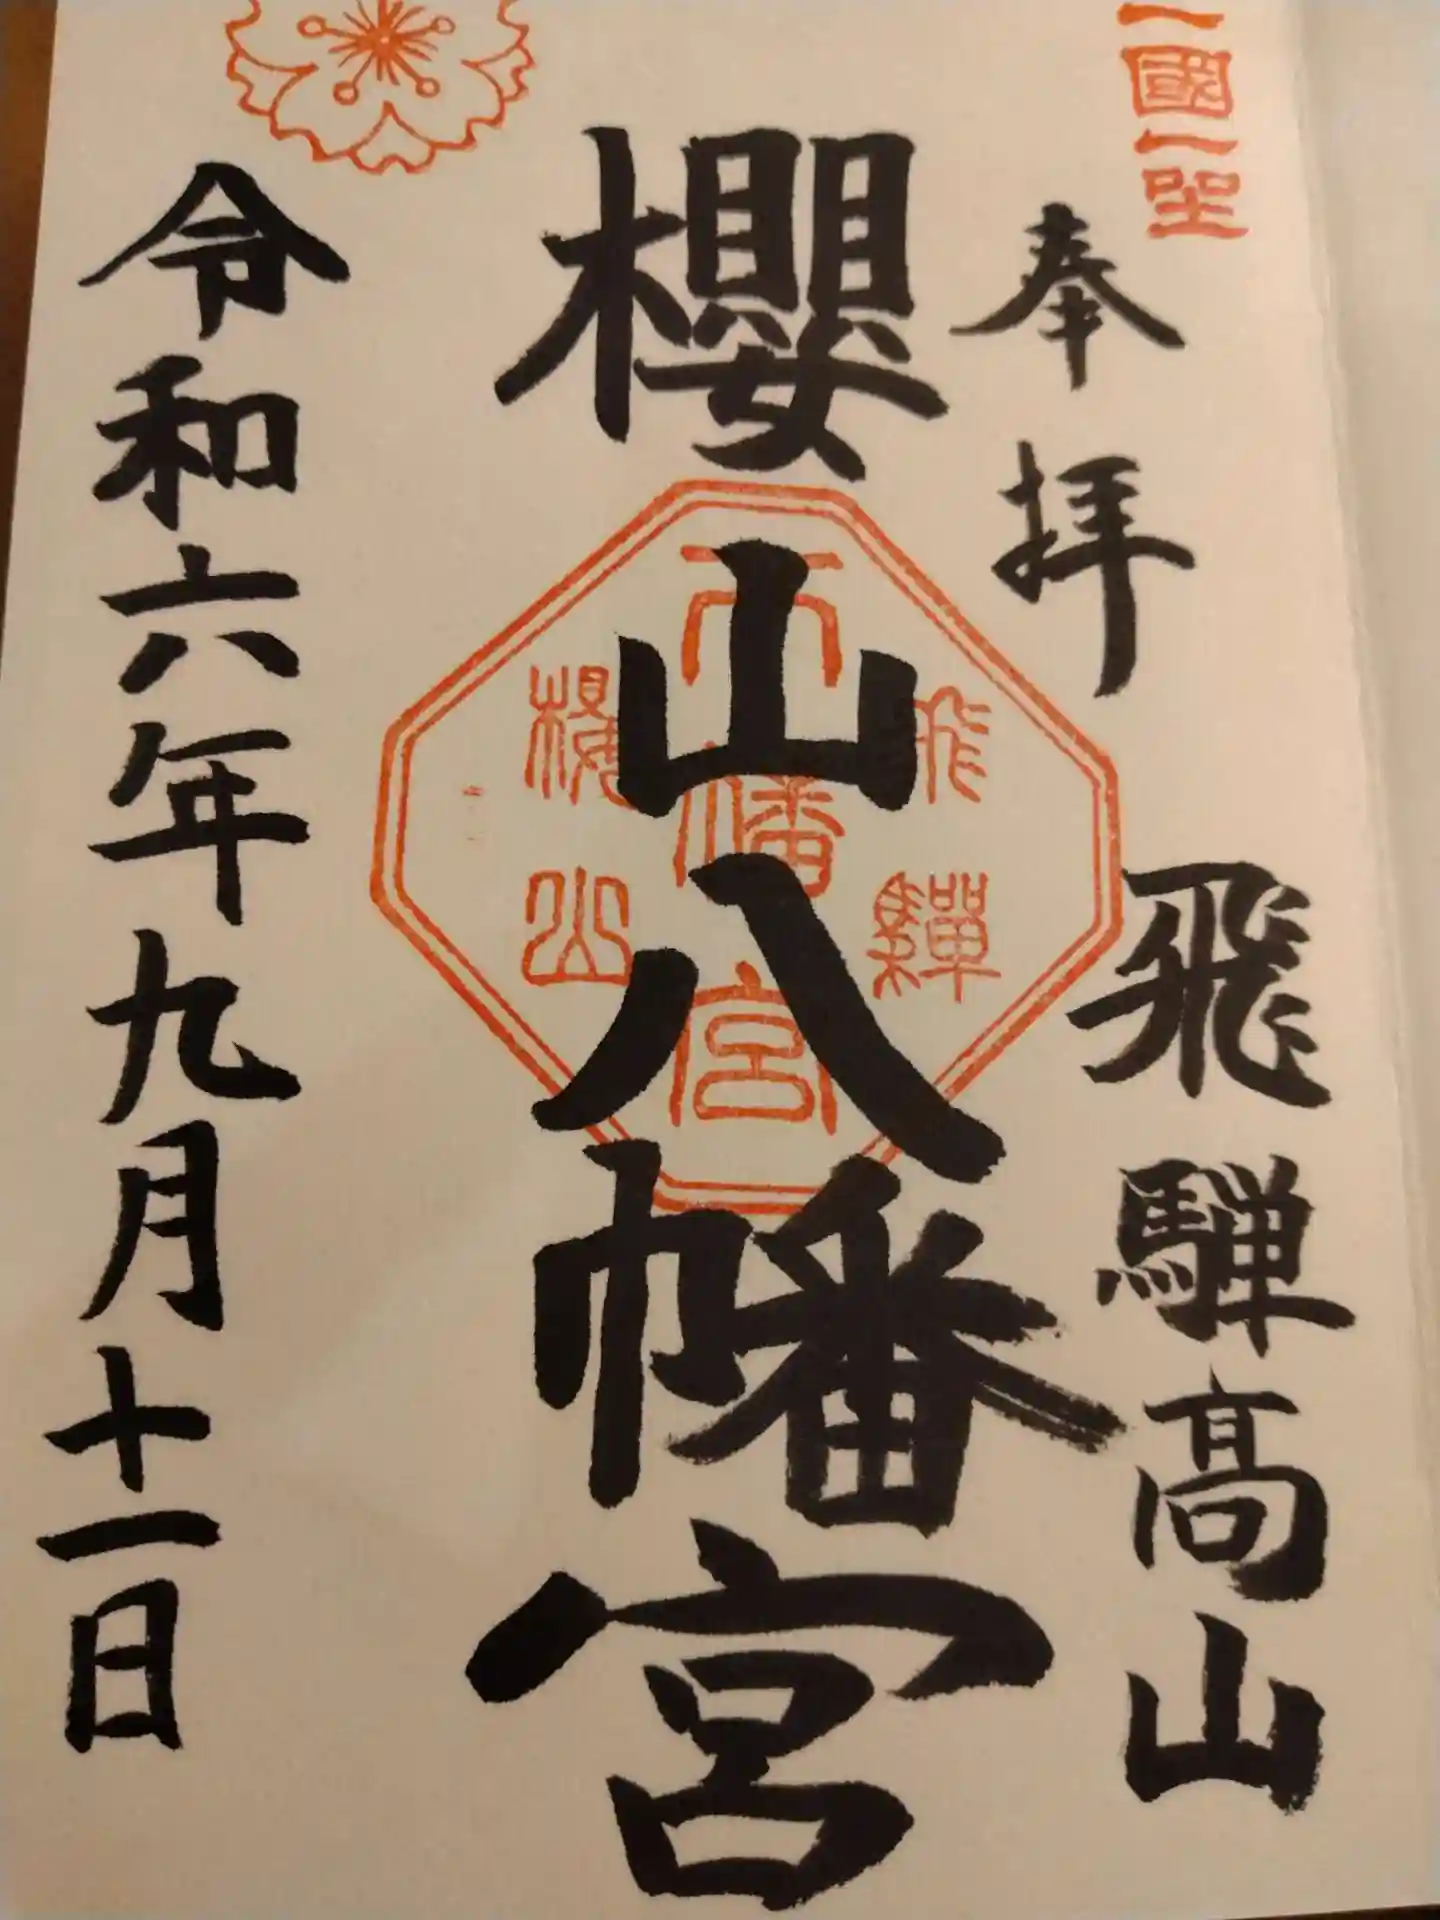 一國一社
奉拝
飛騨高山
櫻山八幡宮
飛驒
八幡宮
櫻山
令和六年九月十一日